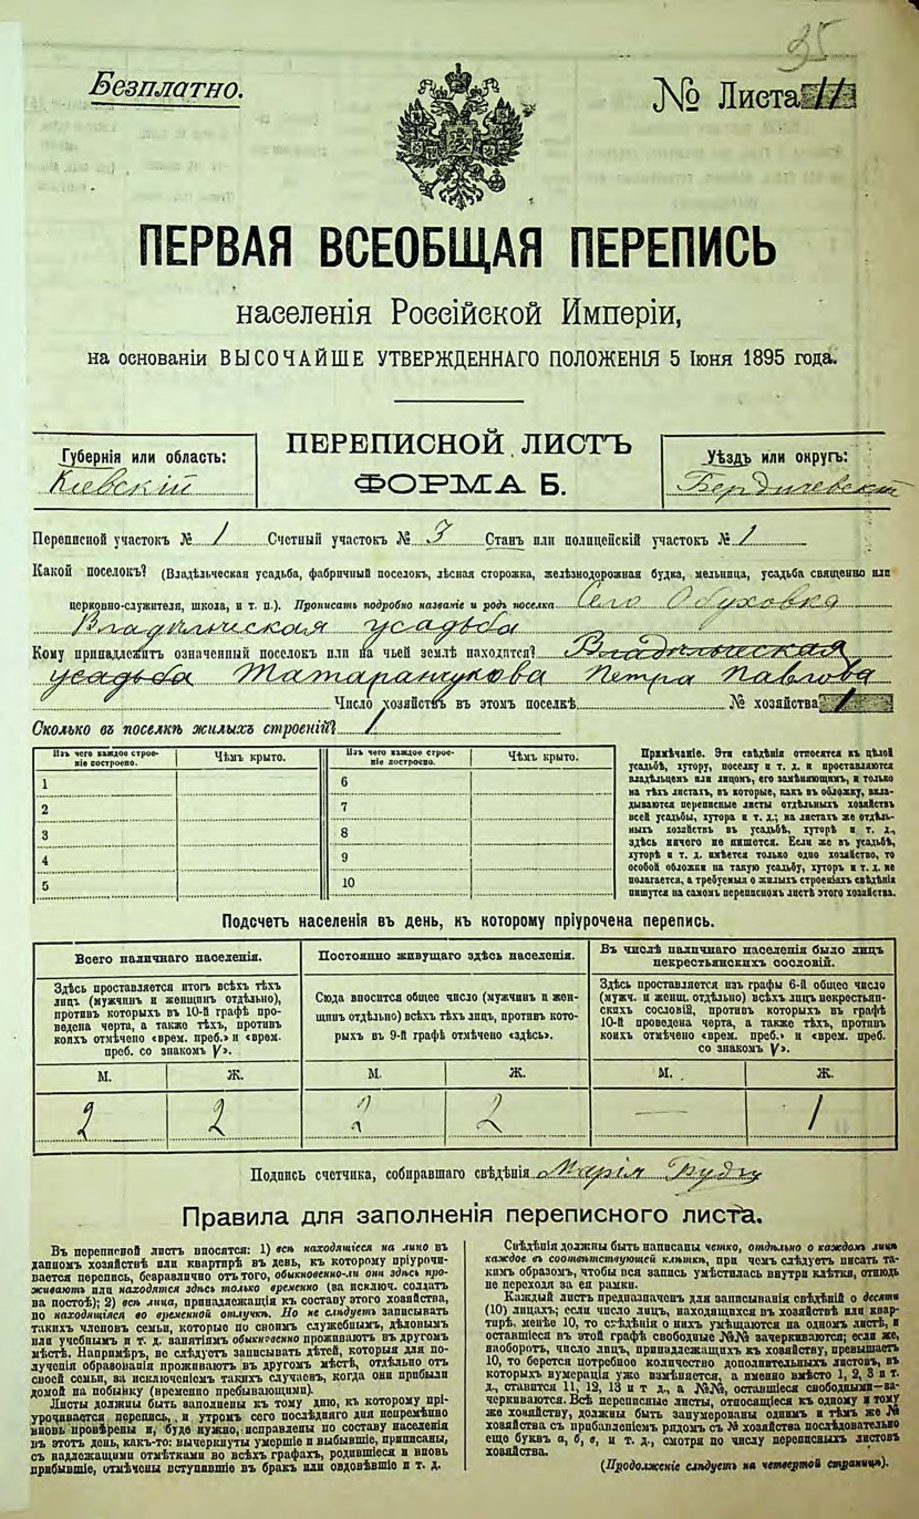 35
Безплатно.
№ Листа 11
ПЕРВАЯ ВСЕОБЩАЯ ПЕРЕПИСЬ
населенія Россійской Имперіи,
на основаніи ВЫСОЧАЙШЕ УТВЕРЖДЕННАГО ПОЛОЖЕНІЯ 5 Іюня 1895 года.
Губернія или область:
Кіевскій
ПЕРЕПИСНОЙ ЛИСТЪ
ФОРМА Б.
Уѣздъ или округъ:
Бердичевскій
Переписной участокъ № 1 Счетный участокъ № 3 Станъ или полицейскій участокъ № 1
Какой поселокъ? (Владѣльческая усадьба, фабричный поселокъ, лѣсная сторожка, желѣзнодорожная будка, мельница, усадьба священно или
церковно-служителя, школа, и т. п.). Прописать подробно названіе и родъ поселка Село Обуховка
Владѣльческая усадьба
Кому принадлежитъ означенный поселокъ или на чьей землѣ находится? Владѣльческая
усадьба Петра Павлова
Число хозяйствъ въ этомъ поселкѣ № хозяйства 1
Сколько въ поселкѣ жилыхъ строеній? 1
Изъ чего каждое строе-
ніе построено.
Чѣмъ крыто.
Изъ чего каждое стро-
ніе построено.
Чѣмъ крыто.
1
2
3
4
5
6
7
8
9
10
Примѣчаніе. Эти свѣдѣнія относятся къ цѣлой
усадьбѣ, хутору, поселку и т. д. и проставляются
владѣльцемъ или лицомъ, его замѣняющимъ, и только
на тѣхъ листахъ, въ которые, какъ въ обложку, вкла-
дываются переписные листы отдѣльныхъ хозяйствъ
всей усадьбы, хутора и т. д.; на листахъ же отдѣль-
ныхъ хозяйствъ въ усадьбѣ, хуторѣ и т. д.,
здѣсь ничего не пишется. Если же въ усадьбѣ,
хуторѣ и т. д. имѣется только одно хозяйство, то
особой обложки на такую усадьбу, хуторъ и т. д. не
полагается, а требуемыя о жилыхъ строеніяхъ свѣдѣнія
пишутся на самомъ переписномъ листѣ этого хозяйства.
Подсчетъ населенія въ день, къ которому пріурочена перепись.
Всего наличнаго населенія.
Здѣсь проставляется итогъ всѣхъ тѣхъ
лицъ (мужчинъ и женщинъ отдѣльно),
противъ которыхъ въ 10-й графѣ про-
ведена черта, а также тѣхъ, противъ
коихъ отмѣчено «врем. преб.» и «врем.
преб. со знакомъ V».
Постоянно живущаго здѣсь населенія.
Сюда вносится общее число (мужчинъ и жен-
щинъ отдѣльно) всѣхъ тѣхъ лицъ, противъ кото-
рыхъ въ 9-й графѣ отмѣчено «здѣсь».
Въ числѣ наличнаго населенія было лицъ
некрестьянскихъ сословій.
Здѣсь проставляется изъ графы 6-й общее число
(мужч. и женщ. отдѣльно) всѣхъ лицъ некрестьян-
скихъ сословій, противъ которыхъ въ графѣ
10-й проведена черта, а также тѣхъ, противъ
коихъ отмѣчено «врем. преб.» и «врем. преб.
со знакомъ V».
М. Ж. М. Ж. М. Ж.
2 2 2 2 — 1
Подпись счетчика, собиравшаго свѣдѣнія Марія
Правила для заполненія переписного листа.
Въ переписной листъ вносятся: 1) всѣ находящіеся на лицо въ
данномъ хозяйствѣ или квартирѣ въ день, къ которому пріурочи-
вается перепись, безразлично отъ того, обыкновенно-ли они здѣсь про-
живаютъ или находятся здѣсь только временно (за исключ. солдатъ
на постоѣ); 2) всѣ лица, принадлежащія къ составу этого хозяйства,
но находящіяся во временной отлучкѣ. Но не слѣдуетъ записывать
такихъ членовъ семьи, которые по своимъ служебнымъ, дѣловымъ
или учебнымъ и т. д. занятіямъ обыкновенно проживаютъ въ другомъ
мѣстѣ. Напримѣръ, не слѣдуетъ записывать дѣтей, которыя для по-
лученія образованія проживаютъ въ другомъ мѣстѣ, отдѣльно отъ
своей семьи, за исключеніемъ такихъ случаевъ, когда они прибыли
домой на побывку (временно пребывающими).
Листы должны быть заполнены къ тому дню, къ которому прі-
урочивается перепись, и утромъ сего послѣдняго дня непремѣнно
вновь провѣрены и, буде нужно, исправлены по составу населенія
въ этотъ день, какъ-то: вычеркнуты умершіе и выбывшіе, приписаны,
съ надлежащими отмѣтками во всѣхъ графахъ, родившіеся и вновь
прибывшіе, отмѣчены вступившіе въ бракъ или овдовѣвшіе и т. д.
Свѣдѣнія должны быть написаны четко, отдѣльно о каждомъ лицѣ
каждое въ соотвѣтствующей клѣткѣ, при чемъ слѣдуетъ писать та-
кимъ образомъ, чтобы вся запись умѣстилась внутри клѣтки, отнюдь
не переходя за ея рамки.
Каждый листъ предназначенъ для записыванія свѣдѣній о десяти
(10) лицахъ; если число лицъ, находящихся въ хозяйствѣ или квар-
тирѣ, менѣе 10, то свѣдѣнія о нихъ умѣщаются на одномъ листѣ, и
оставшіеся въ этой графѣ свободные №№ зачеркиваются; если же,
наоборотъ, число лицъ, принадлежащихъ къ хозяйству, превышаетъ
10, то берется потребное количество дополнительныхъ листовъ, въ
которыхъ нумерація уже измѣняется, а именно вмѣсто 1, 2, 3 и т.
д., ставится 11, 12, 13 и т. д., а №№, оставшіеся свободными—за-
черкиваются. Всѣ переписные листы, относящіеся къ одному и тому
же хозяйству, должны быть занумерованы однимъ и тѣмъ же №
хозяйства съ прибавленіемъ рядомъ съ № хозяйства послѣдовательно
еще буквъ а, б, в, и т. д., смотря по числу переписныхъ листовъ
хозяйства.
(Продолженіе слѣдуетъ на четвертой страницѣ).